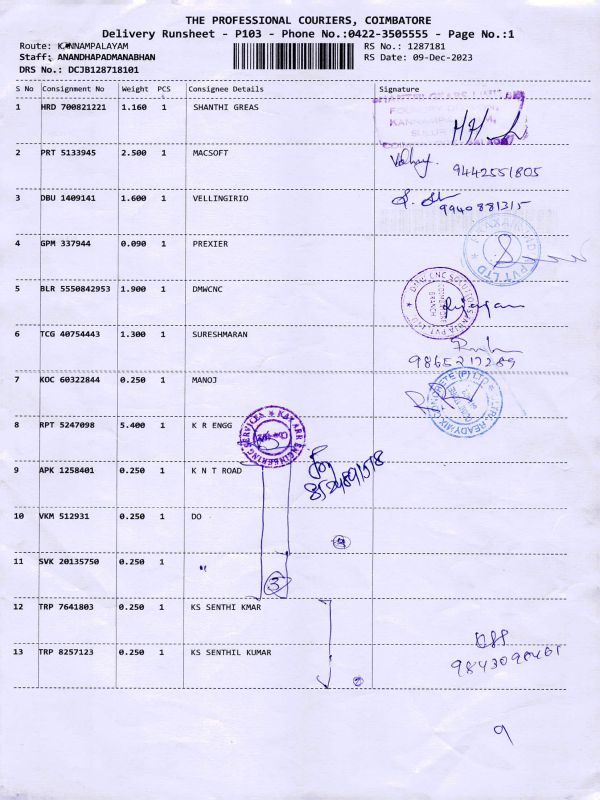 THE PROFESSIONAL COURIERS, COIMBATORE
Delivery Runsheet - P103 - Phone No.:0422-3505555 - Page No.:1
Route: KANNAMPALAYAM RS No.: 1287181
Staff: ANANDHAPADMANABHAN RS Date: 09-Dec-2023
DRS No.: DCJB128718101
S No Consignment No Weight PCS Consignee Details Signature
1 HRD 700821221 1.160 1 SHANTHI GREAS
SHANTHI GEARS LIMITED
FOUNDRY DIVISION,
KANNAMPALAYAM,
SULUR
2 PRT 5133945 2.500 1 MACSOFT
9442551805
3 DBU 1409141 1.600 1 VELLINGIRIO
9940881315
4 GPM 337944 0.090 1 PREXIER
PVT LTD
5 BLR 5550842953 1.900 1 DMWCNC
DMW CNC SOLUTIONS INDIA PVT LTD
COIMBATORE
BRANCH
6 TCG 40754443 1.300 1 SURESHMARAN
9865217289
7 KOC 60322844 0.250 1 MANOJ
8 RPT 5247098 5.400 1 K R ENGG
ENGINEERING SERVICES
9 APK 1258401 0.250 1 K N T ROAD
10 VKM 512931 0.250 1 DO
11 SVK 20135750 0.250 1 "
3
12 TRP 7641803 0.250 1 KS SENTHI KMAR
13 TRP 8257123 0.250 1 KS SENTHIL KUMAR
9